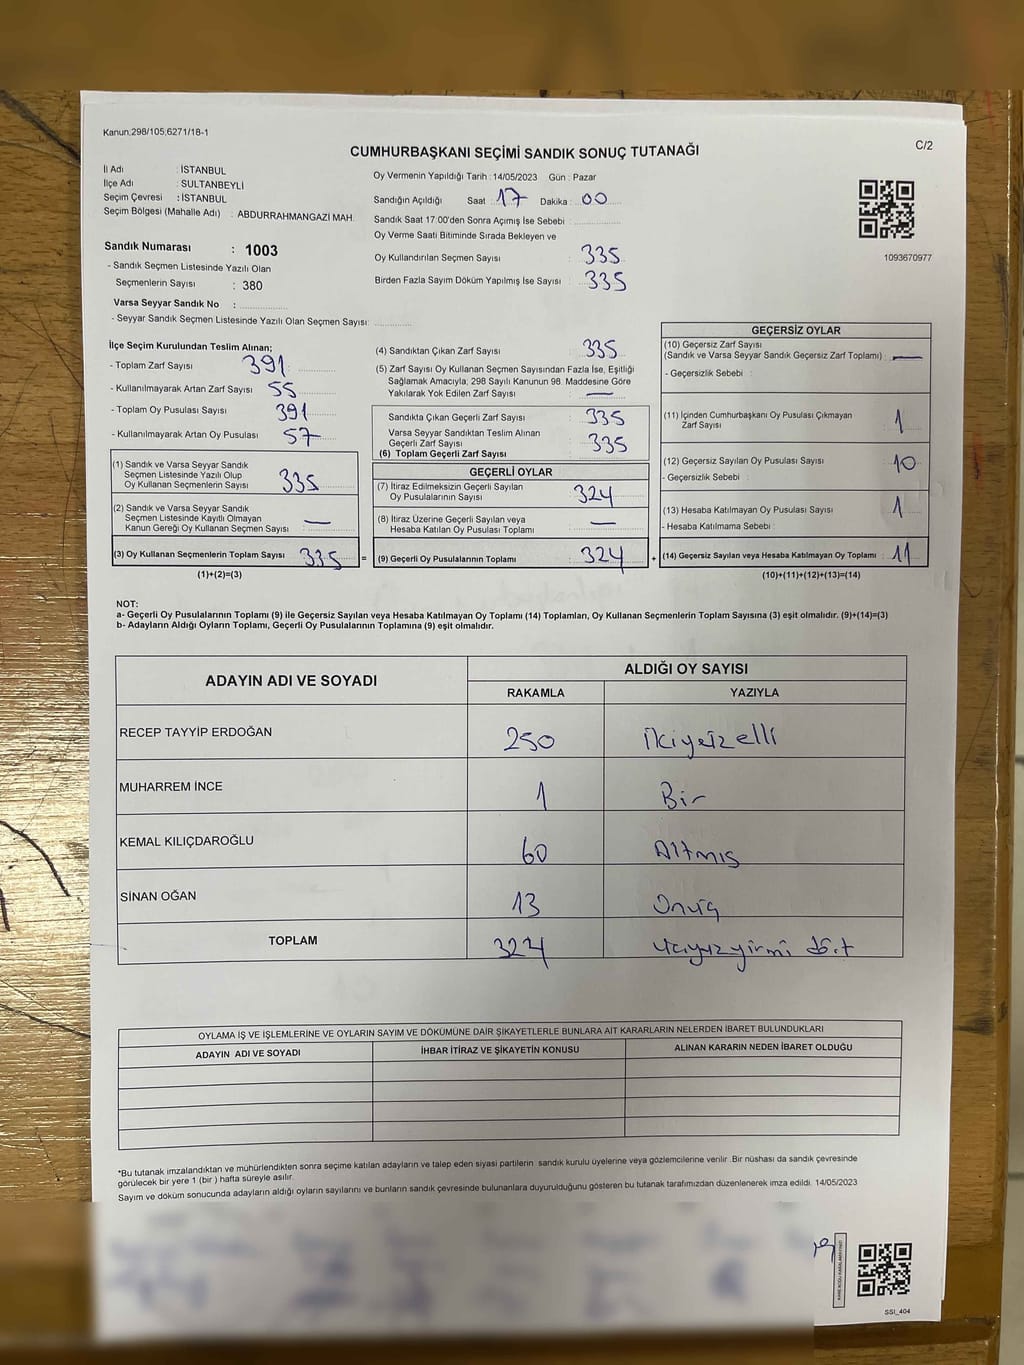 Kanun,298/105,6271/18-1
C/2
CUMHURBAŞKANI SEÇİMİ SANDIK SONUÇ TUTANAĞI
İl Adı : İSTANBUL
İlçe Adı : SULTANBEYLİ
Seçim Çevresi : İSTANBUL
Seçim Bölgesi (Mahalle Adı) : ABDURRAHMANGAZİ MAH.
Oy Vermenin Yapıldığı Tarih :14/05/2023 Gün : Pazar
Sandığın Açıldığı Saat : 17 Dakika : 00
Sandık Saat 17.00'den Sonra Açımış İse Sebebi :
Oy Verme Saati Bitiminde Sırada Bekleyen ve
Oy Kullandırılan Seçmen Sayısı : 335
Birden Fazla Sayım Döküm Yapılmış İse Sayısı : 335
1093670977
Sandık Numarası : 1003
- Sandık Seçmen Listesinde Yazılı Olan
Seçmenlerin Sayısı : 380
Varsa Seyyar Sandık No :
- Seyyar Sandık Seçmen Listesinde Yazılı Olan Seçmen Sayısı:
İlçe Seçim Kurulundan Teslim Alınan;
- Toplam Zarf Sayısı : 391
- Kullanılmayarak Artan Zarf Sayısı : 55
- Toplam Oy Pusulası Sayısı : 391
- Kullanılmayarak Artan Oy Pusulası : 57
(1) Sandık ve Varsa Seyyar Sandık
Seçmen Listesinde Yazılı Olup
Oy Kullanan Seçmenlerin Sayısı : 335
(2) Sandık ve Varsa Seyyar Sandık
Seçmen Listesinde Kayıtlı Olmayan
Kanun Gereği Oy Kullanan Seçmen Sayısı : —
(3) Oy Kullanan Seçmenlerin Toplam Sayısı : 335 =
(1)+(2)=(3)
(4) Sandıktan Çıkan Zarf Sayısı : 335
(5) Zarf Sayısı Oy Kullanan Seçmen Sayısından Fazla İse, Eşitliği
Sağlamak Amacıyla; 298 Sayılı Kanunun 98. Maddesine Göre
Yakılarak Yok Edilen Zarf Sayısı : —
Sandıkta Çıkan Geçerli Zarf Sayısı : 335
Varsa Seyyar Sandıktan Teslim Alınan
Geçerli Zarf Sayısı : 335
(6) Toplam Geçerli Zarf Sayısı
GEÇERLİ OYLAR
(7) İtiraz Edilmeksizin Geçerli Sayılan
Oy Pusulalarının Sayısı : 324
(8) İtiraz Üzerine Geçerli Sayılan veya
Hesaba Katılan Oy Pusulası Toplamı : —
(9) Geçerli Oy Pusulalarının Toplamı : 324 +
GEÇERSİZ OYLAR
(10) Geçersiz Zarf Sayısı
(Sandık ve Varsa Seyyar Sandık Geçersiz Zarf Toplamı) : —
- Geçersizlik Sebebi :
(11) İçinden Cumhurbaşkanı Oy Pusulası Çıkmayan
Zarf Sayısı : 1
(12) Geçersiz Sayılan Oy Pusulası Sayısı : 10
- Geçersizlik Sebebi :
(13) Hesaba Katılmayan Oy Pusulası Sayısı : 1
- Hesaba Katılmama Sebebi :
(14) Geçersiz Sayılan veya Hesaba Katılmayan Oy Toplamı : 11
(10)+(11)+(12)+(13)=(14)
NOT:
a- Geçerli Oy Pusulalarının Toplamı (9) ile Geçersiz Sayılan veya Hesaba Katılmayan Oy Toplamı (14) Toplamları, Oy Kullanan Seçmenlerin Toplam Sayısına (3) eşit olmalıdır. (9)+(14)=(3)
b- Adayların Aldığı Oyların Toplamı, Geçerli Oy Pusulalarının Toplamına (9) eşit olmalıdır.
ADAYIN ADI VE SOYADI
ALDIĞI OY SAYISI
RAKAMLA YAZIYLA
RECEP TAYYİP ERDOĞAN 250 ikiyüzelli
MUHARREM İNCE 1 Bir
KEMAL KILIÇDAROĞLU 60 Altmış
SİNAN OĞAN 13 Onüç
TOPLAM 324 üçyüzyirmi dört
OYLAMA İŞ VE İŞLEMLERİNE VE OYLARIN SAYIM VE DÖKÜMÜNE DAİR ŞİKAYETLERLE BUNLARA AİT KARARLARIN NELERDEN İBARET BULUNDUKLARI
ADAYIN ADI VE SOYADI İHBAR İTİRAZ VE ŞİKAYETİN KONUSU ALINAN KARARIN NEDEN İBARET OLDUĞU
*Bu tutanak imzalandıktan ve mühürlendikten sonra seçime katılan adayların ve talep eden siyasi partilerin sandık kurulu üyelerine veya gözlemcilerine verilir .Bir nüshası da sandık çevresinde
görülecek bir yere 1 (bir ) hafta süreyle asılır.
Sayım ve döküm sonucunda adayların aldığı oyların sayılarını ve bunların sandık çevresinde bulunanlara duyurulduğunu gösteren bu tutanak tarafımızdan düzenlenerek imza edildi. 14/05/2023
SSI_404